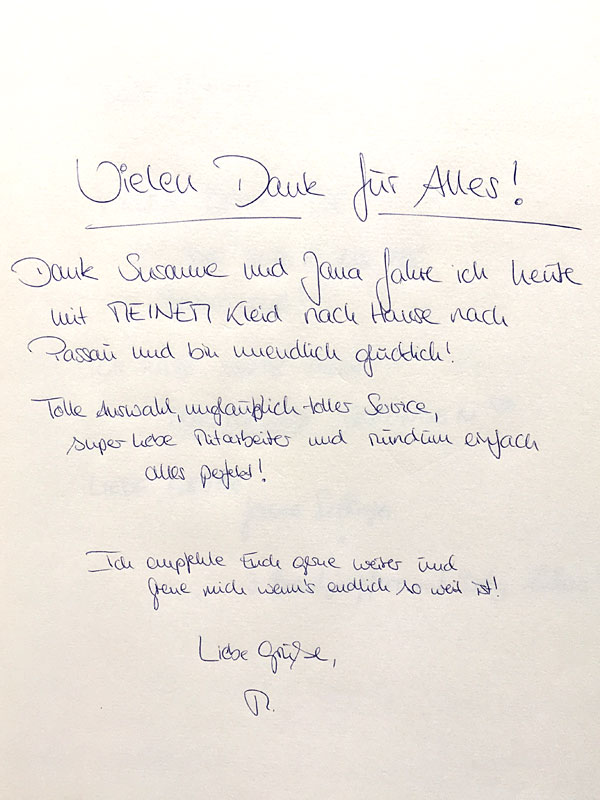 Vielen Dank für Alles!
Dank Susanne und Jana fahre ich heute
mit MEINEM Kleid nach Hause nach
Passau und bin unendlich glücklich!
Tolle Auswahl, unglaublich toller Service,
super liebe Mitarbeiter und rundum einfach
alles perfekt!
Ich empfehle Euch gerne weiter und
freue mich wenn's endlich so weit ist!
Liebe Grüße,
M.